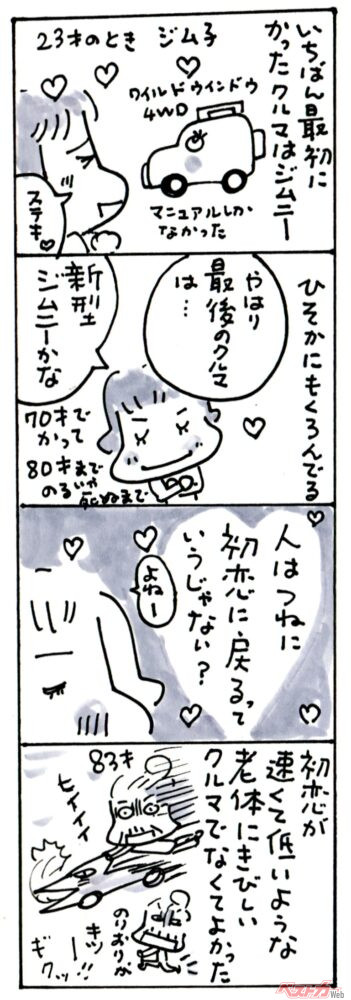 いちばん最初に
かったクルマはジムニー
23才のとき ジム子
ワイルドウインドウ
4WD
マニュアルしか
なかった
ステキ♡
ひそかにもくろんでる
やはり
最後のクルマ
は…
新型
ジムニーかな
70才で
かって
80才まで
のるいや
死ぬまで
人はつねに
初恋に戻るって
いうじゃない?
よねー
初恋が
速くて低いような
老体にきびしい
クルマでなくてよかった
83才
ヒィィィ
のりおりが
キツ
ー
ギクッ!!
ベストカーWeb